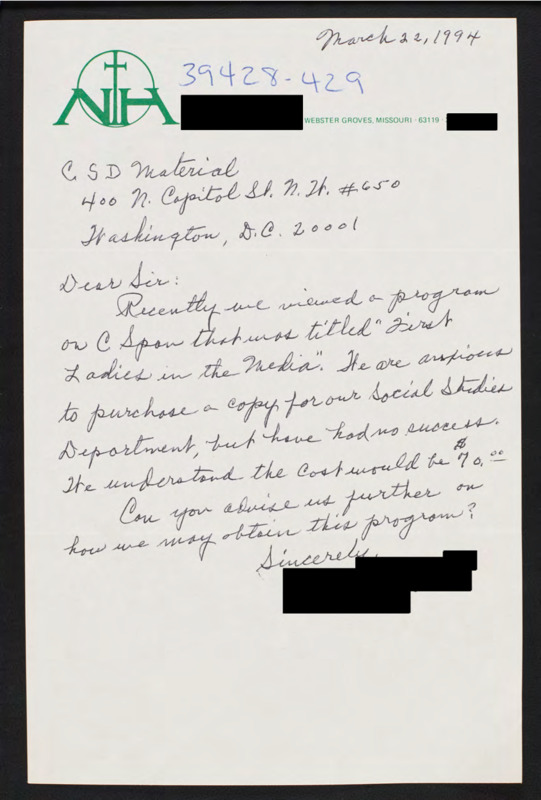 March 22, 1994
NH
39428-429
WEBSTER GROVES, MISSOURI · 63119
C S D Material
400 N. Capitol St. N.W. #650
Washington, D.C. 20001
Dear Sir:
Recently we viewed a program
on C Span that was titled "First
Ladies in the Media". We are anxious
to purchase a copy for our Social Studies
Department, but have had no success.
We understand the cost would be $70.00
Can you advise us further on
how we may obtain this program?
Sincerely,